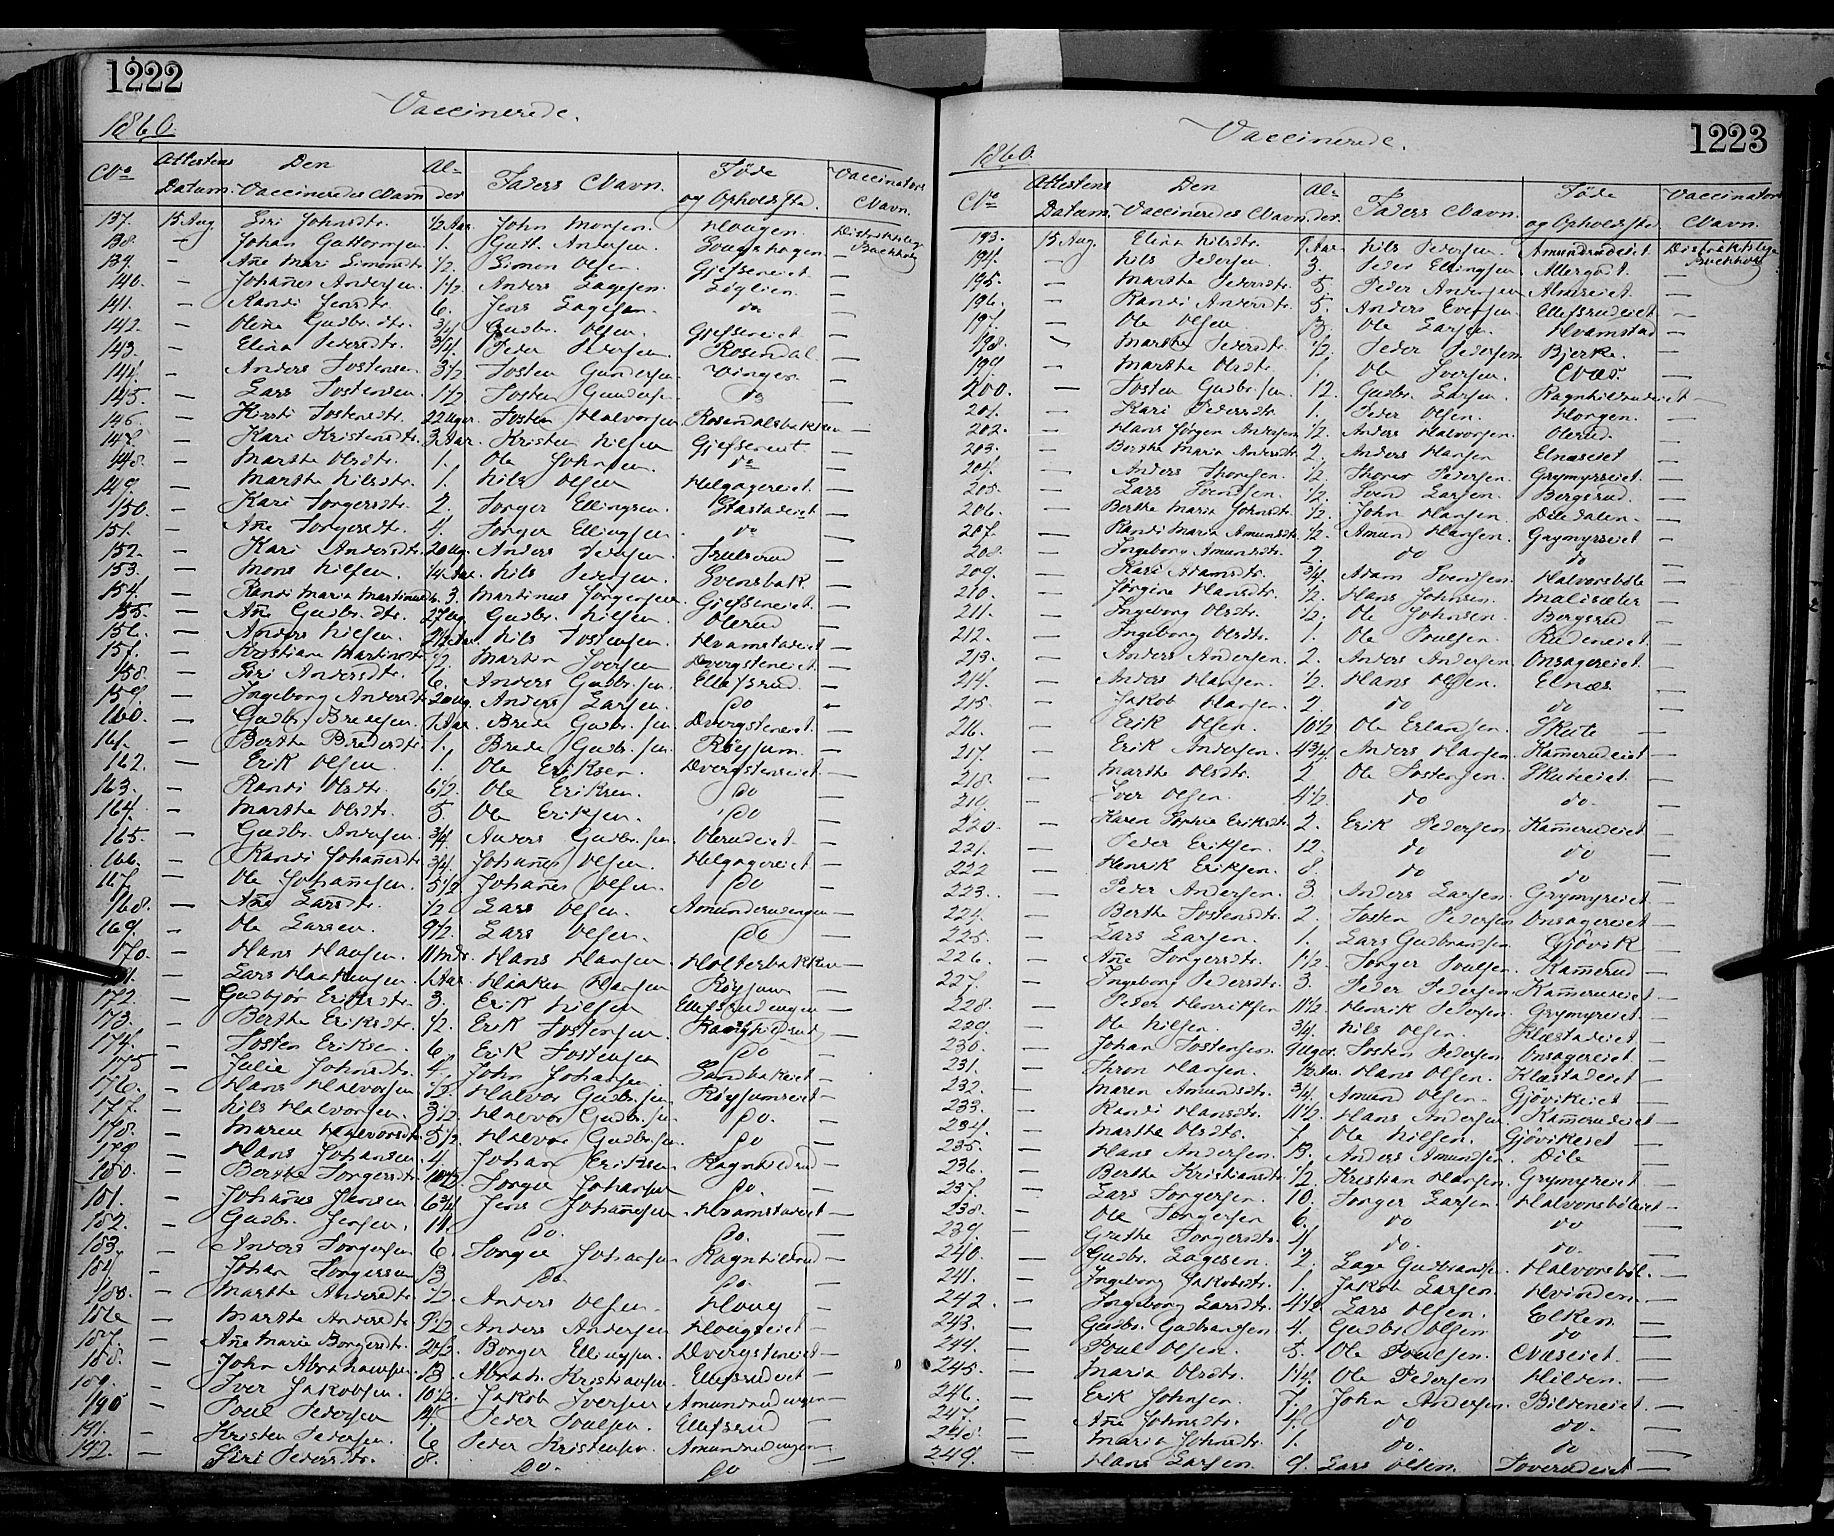 1222
Vaccinerede.
1860.
No Attestens Datum. Den Vaccineredes Navn Alder Faders Navn. Føde og Opholdssted. Vaccinators Navn.
137. 15 Aug. Siri Johnsdtr. 1/2 Aar John Morsen. Haugen. Distriktslæge
138. — Johan Guttormsen 1. Gutt. Andersen. Buchholz
139. — Ane Mari Simonsdtr. 1/2. Simon Olsen. Gjefseneiet. —
140. — Johanes Andersen. 1 1/2 Anders Lagesen. —
141. — Randi Jensdtr. 6. Jens Lagesen. do —
142. — Olene Gudbr.dtr. 3/4 Gudbr. Olsen. Gjefseneiet. —
143. — Elina Pedersdtr. 3/4. Peder Pedersen. Rosendal. —
144. — Anders Tostensen 3 1/2 Tosten Gundersen. Vinger. —
145. — Lars Tostensen. 1 1/2 Tosten Gundersen. do —
146. — Kersti Tostensdtr. 22 Uger. Tosten Halvorsen. Rosendalsbakken —
147. — Kari Kristensdtr. 3 Aar. Kristen Nilsen Gjefseneiet. —
148. — Marthe Olsdtr. 1. Ole Johnsen. do —
149. — Marthe Nilsdtr. 1. Nils Olsen Helgagereiet. —
150. — Kari Torgersdtr. 2. Torger Ellingsen. —
151. — Ane Torgersdtr. 4. Torger Ellingsen. do —
152. — Kari Andersdtr. 20 Ug. Anders Pedersen. Trulserud —
153. — Mons Nilsen. 1/4 Aar. Nils Pedersen. Svensbak. —
154. — Randi Maria Martinusdtr. 3. Martinus Jørgensen. Gjefseneiet. —
155. — Ane Gudbr.dtr. 27 Ug. Gudbr. Nilsen. Olerud —
156. — Anders Nilsen. Nils Tostensen. Hvamstadeiet —
157. — Kristiane Martinsdtr. 1/2. Martin Iversen Dvergsteneiet. —
158. — Siri Andersdtr. 6. Anders Gudbr.sen. Ellefsrud. —
159. — Ingeborg Andersdtr. 20 Ug. Anders Larsen. do —
160. — Gudbr. Bredesen. 1 Aar. Brede Gudbr.sen. Dvergsteneiet. —
161. — Berthe Bredesdtr. 1. Brede Gudbr.sen. Røysum. —
162. — Erik Olsen. 1. Ole Eriksen. Dvergsteneiet —
163. — Randi Olsdtr. 6 1/2. Ole Eriksen. do —
164. — Marthe Olsdtr. 5. Ole Eriksen. do —
165. — Gudbr. Andersen. 3/4. Anders Gudbr.sen. Olerudeiet —
166. — Randi Johanesdtr. 3/4. Johanes Olsen. Helgagereiet —
167. — Ole Johanesen. 5 1/2 Johanes Olsen. do —
168. — Ane Larsdtr. 1/2 Lars Olsen. Amundrudengen —
169. — Ole Larsen. 9 1/2. Lars Olsen. do —
170. — Hans Hansen. 11 Mdr. Hans Hansen. Holterbakken —
171. — Lars Haakensen. 1 Aar. Haaken Olsen Røysum —
172. — Gudbjør Eriksdtr. 3. Erik Nilsen Ellefsrudengen —
173. — Berthe Eriksdtr. 1/2. Erik Tostensen Ragnhildrud —
174. — Tosten Eriksen. 6. Erik Tostensen do —
175 — Julie Johnsdtr. 4. John Johansen. Sandbakeiet —
176. — Hans Halvorsen 1/2. Halvor Gudbr.sen. Røysumseiet —
177. — Nils Halvorsen. 3 1/2. Halvor Gudbr.sen do. —
178. — Maren Halvorsdtr. 5 1/2. Halvor Gudbr.sen. do —
179. — Hans Johansen. 4. Johan Eriksen. Ragnhildrud —
180. — Berthe Torgersdtr. 10 1/2. Torger Johansen do. —
181. — Johanes Jensen 6 3/4 Jens Johanesen. Hvamstadeiet —
182. — Gudbr. Jensen. 11. do. do. —
183. — Anders Torgersen 6. Torger Johansen Ragnhildrud —
184 — Johan Torgersen 13 do. do. —
185. — Marthe Andersdtr. 1/2. Anders Olsen. Houg —
186 — Marthe Andersdtr. 9 1/2 Anders Andersen Hougseiet —
187. — Ane Marie Borgersdtr. 2 1/2. Borger Ellingsen. Dvergsteneiet —
188. — John Abrahamsen. 13 Abrah. Kristiansen. Ellefsrudeiet —
189. — Iver Jakobsen. 10 1/2. Jakob Iversen Amundrudengen —
190 — Poul Pedersen 14. Peder Poulsen. Ellefsrud —
191. — Kristen Pedersen. 6 Peder Kristensen. Amundrudengen —
192. — Siri Pedersdtr. 8. do. do —
1223
Vaccinerede.
1860.
No Attestens Datum. Den Vaccineredes Navn Alder. Faders Navn. Føde og Opholdssted Vaccinators Navn.
193. 15 Aug. Elina Nilsdtr. 1 Aar Nils Pedersen. Amundrudeiet Distriktslæge
194. — Nils Pedersen. 3. Peder Ellingsen Allergodt. Buchholz
195. — Marthe Pedersdtr. 5. Peder Andersen Almseiet. —
196. — Randi Andersdtr. 5. Anders Evensen Ellefsrudeiet —
197. — Ole Olsen 8. Ole Larsen. Hvamstad —
198. — Marthe Pedersdtr. 1/2. Peder Pedersen Bjerke. —
199. — Marthe Olsdtr. 1. Ole Iversen. Næs. —
200. — Tosten Gudbr.sen. 12. Gudbr. Larsen. Ragnhildrudeiet —
201. — Kari Pedersdtr. 1. Peder Olsen. Horgen. —
202. — Hans Jørgen Andersen 1/2. Anders Halvorsen. Olerud. —
203. — Berthe Maria Andersdtr. 2. Anders Hansen Elnæseiet —
204. — Anders Thorsen. 1/2 Thorer Pedersen. Grymyrseiet. —
205. — Lars Svendsen. 1/2. Svend Larsen. Bergsrud. —
206. — Berthe Maria Johnsdtr. 1/2. John Hansen. Diledalen. —
207. — Randi Maria Amundsdtr. 1/2. Amund Hansen. Grymyrseiet —
208. — Ingeborg Amundsdtr. 2. do do —
209. — Kari Adamsdtr. 3/4. Adam Svendsen. Halvorsbøle —
210. — Jørgine Hansdtr. 1/2. Hans Johnsen. Malisæter —
211. — Ingeborg Olsdtr. 1/2. Ole Johnsen. Bergsrud —
212. — Ingeborg Olsdtr. 1. Ole Poulsen. Rudeneiet. —
213. — Anders Andersen. 2. Anders Andersen. Onsagereiet. —
214. — Anders Hansen. 1/2. Hans Olsen. Elnæs —
215 — Jakob Hansen. 2. do do —
216. — Erik Olsen. 10 1/2 Ole Erlandsen. —
217. — Erik Andersen. 4 3/4. Anders Hansen. Kamerudeiet —
218. — Marthe Olsdtr. 2 Ole Tostensen. —
219. — Iver Olsen. 4 1/2. do do. —
220. — Karen Sophie Eriksdtr. 2. Erik Pedersen. Kamerudeiet —
221. — Peder Eriksen. 12. do do —
222 — Henrik Eriksen. 8. do do —
223. — Peder Andersen. 3. Anders Larsen. Grymyreiet —
224. — Berthe Tostensdtr. 2. Tosten Pedersen Onsagereiet —
225. — Lars Larsen. 1. Lars Gudbrandsen Gjøvik —
226. — Ane Torgersdtr. 1 1/2 Torger Poulsen. Kamerud —
227. — Ingeborg Pedersdtr. 3. Peder Pedersen. Kamerudeiet —
228. — Peder Henriksen 11 1/2. Henrik Pedersen. Grymyreiet —
229. — Ole Nilsen. 3/4. Nils Olsen. Klæstadeiet —
230. — Johan Tostensen. 9 Uger. Tosten Pedersen Onsagereiet. —
231. — Thron Hansen. 1/2 Aar. Hans Olsen. Klæstadeiet —
232. — Maren Amundsdtr. 3/4. Amund Olsen. Gjøvikeiet —
233. — Randi Hansdtr. 11 1/2. Hans Andersen. Kamerudeiet —
234. — Marthe Olsdtr. 7. Ole Nilsen. Gjøvikeiet —
235. — Hans Andersen. 13. Anders Amundsen. Dile —
236. — Berthe Kristiansdtr. 1/2 Kristian Hansen. Grymyreiet —
237. — Lars Torgersen. 10. Torger Larsen. Halvorsbøleiet —
238. — Ole Torgersen 6. do do —
239. — Grethe Torgersdtr. 4. do. do. —
240. — Gudbr. Lagesen. 2. Lage Gudbrandsen. Halvorsbøl. —
241. — Ingeborg Jakobsdtr. 1. Jakob Larsen. Hvinden. —
242. — Ingeborg Larsdtr. 4 1/2 Lars Olsen. Elken —
243. — Gudbr. Gudbrandsen 4. Gudbr. Olsen do —
244. — Poul Olsen. 5. Ole Poulsen. Næseiet. —
245. — Maria Olsdtr. 1 1/4. Ole Pedersen. Hilden. —
246. — Erik Johnsen. 7. John Andersen. Bildeneiet. —
247. — Ane Johnsdtr. 4. do do. —
248. — Maria Johnsdtr. 1. do. do —
249. — Hans Larsen. 9. Lars Olsen. Toverudeiet —